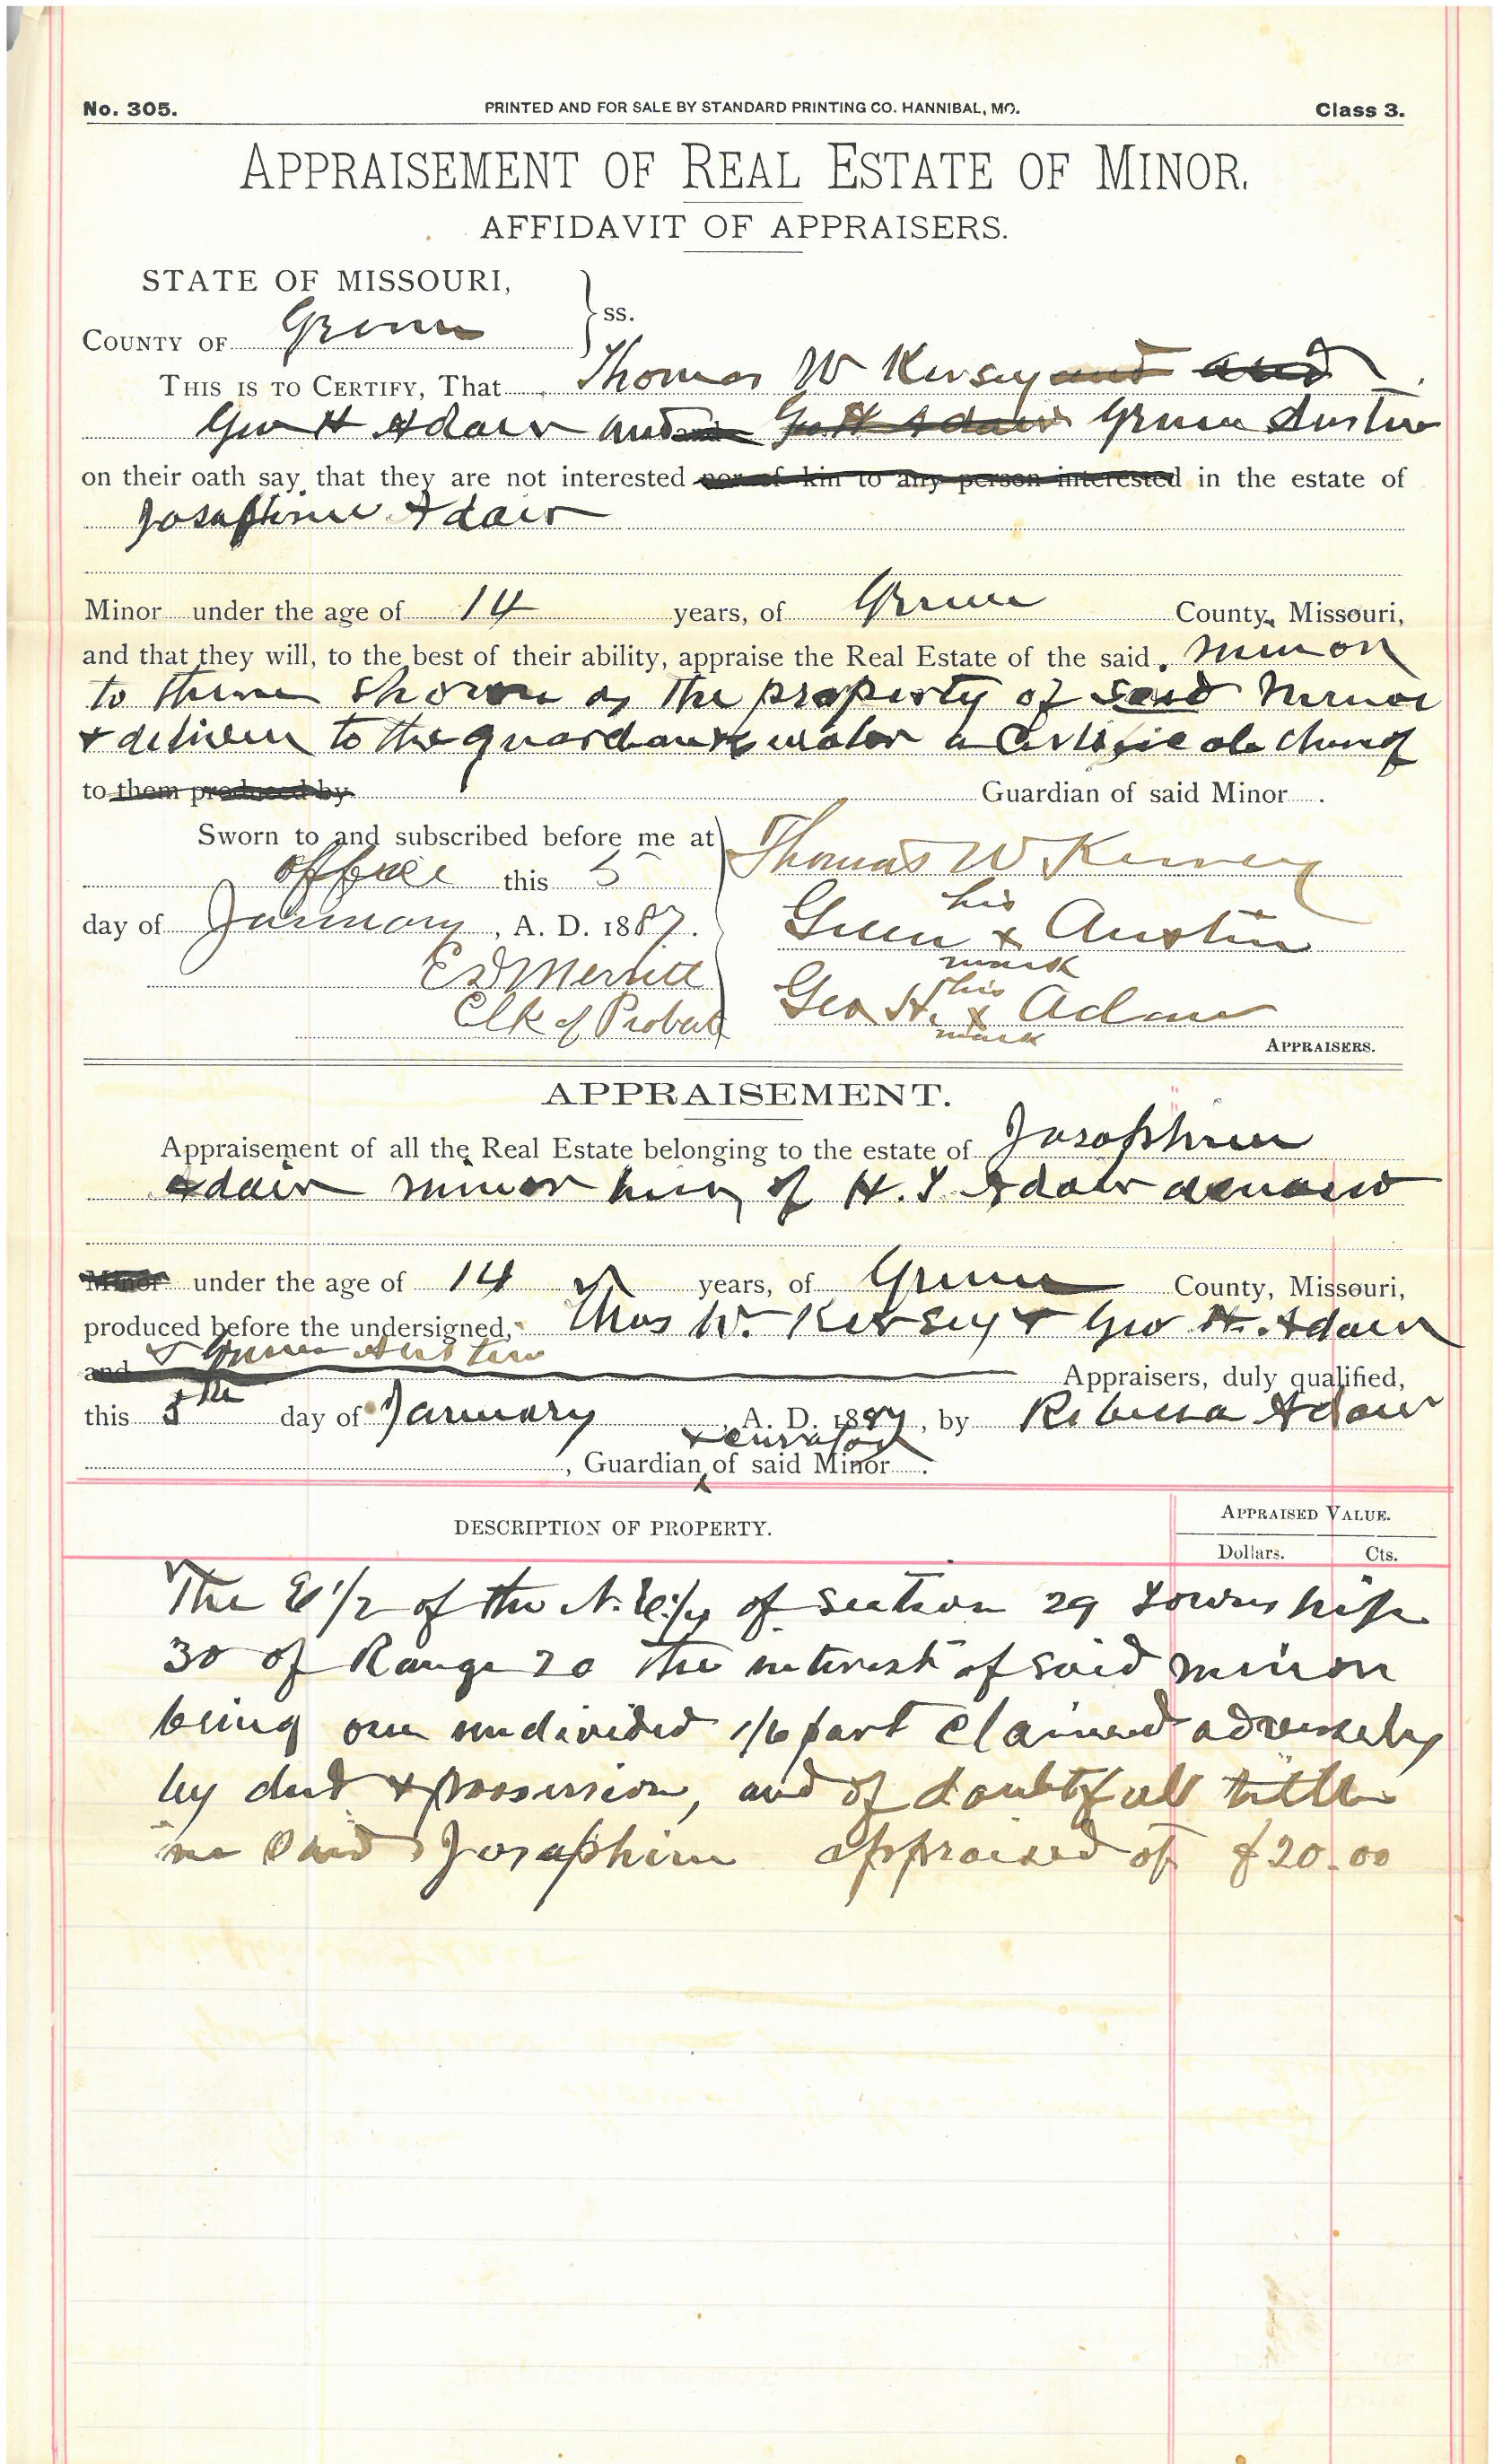 No. 305. PRINTED AND FOR SALE BY STANDARD PRINTING CO. HANNIBAL, MO. Class 3.
APPRAISEMENT OF REAL ESTATE OF MINOR.
AFFIDAVIT OF APPRAISERS.
STATE OF MISSOURI,
COUNTY OF Greene ss.
THIS IS TO CERTIFY, That Thomas W Kersey and and
Geo H Adair and Geo H Adair Green Austin
on their oath say that they are not interested nor of kin to any person interested in the estate of
Josephine Adair
Minor under the age of 14 years, of Greene County, Missouri,
and that they will, to the best of their ability, appraise the Real Estate of the said minor
to them shown as the property of said minor
& deliver to the guardian & curator a
to them produced by Guardian of said Minor .
Sworn to and subscribed before me at Thomas W Kersey
office this 5
his
day of January, A. D. 1887. Green x Austin
mark
E D Merritt
his
Clk of Probate Geo H. x Adair
mark
APPRAISERS.
APPRAISEMENT.
Appraisement of all the Real Estate belonging to the estate of Josephine
Adair minor heir of H. T. Adair deceased
Minor under the age of 14 years, of Greene County, Missouri,
produced before the undersigned, Thos W. Kersey & Geo H. Adair
& Green Austin
and Appraisers, duly qualified,
this 5th day of January, A. D. 1887, by Rebecca Adair
& curator
, Guardian of said Minor .
DESCRIPTION OF PROPERTY. APPRAISED VALUE.
Dollars. Cts.
The E 1/2 of the N.E. 1/4 of section 29 Township
30 of Range 20 the interest of said minor
being one undivided 1/6 part claimed adversely
by deed & possession, and of doubtfull tittle
in said Josephine appraised at $20.00